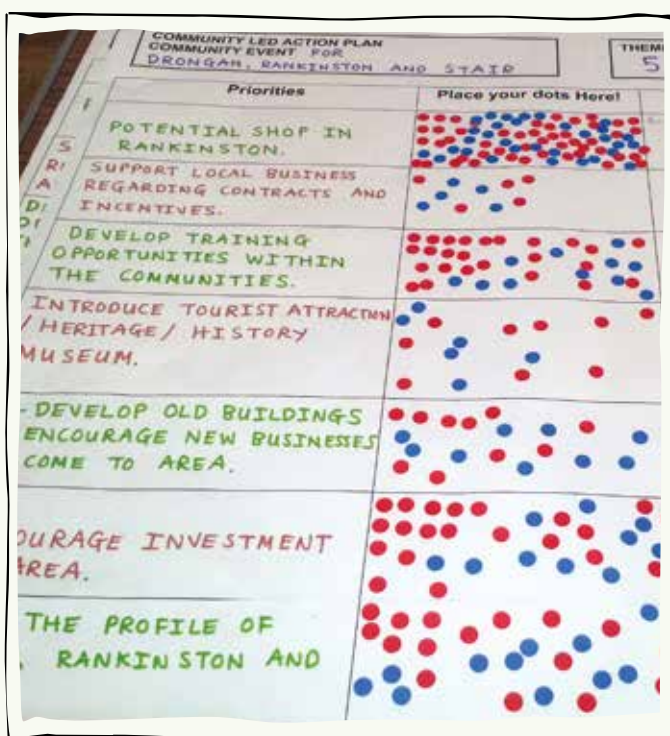 COMMUNITY LED ACTION PLAN
COMMUNITY EVENT FOR
DRONGAN, RANKINSTON AND STAIR
THEM
5
Priorities
Place your dots Here!
POTENTIAL SHOP IN
RANKINSTON.
SUPPORT LOCAL BUSINESS
REGARDING CONTRACTS AND
INCENTIVES.
DEVELOP TRAINING
OPPORTUNITIES WITHIN
THE COMMUNITIES.
INTRODUCE TOURIST ATTRACTION
/ HERITAGE / HISTORY
MUSEUM.
- DEVELOP OLD BUILDINGS
ENCOURAGE NEW BUSINESSES
COME TO AREA.
OURAGE INVESTMENT
AREA.
THE PROFILE OF
RANKINSTON AND